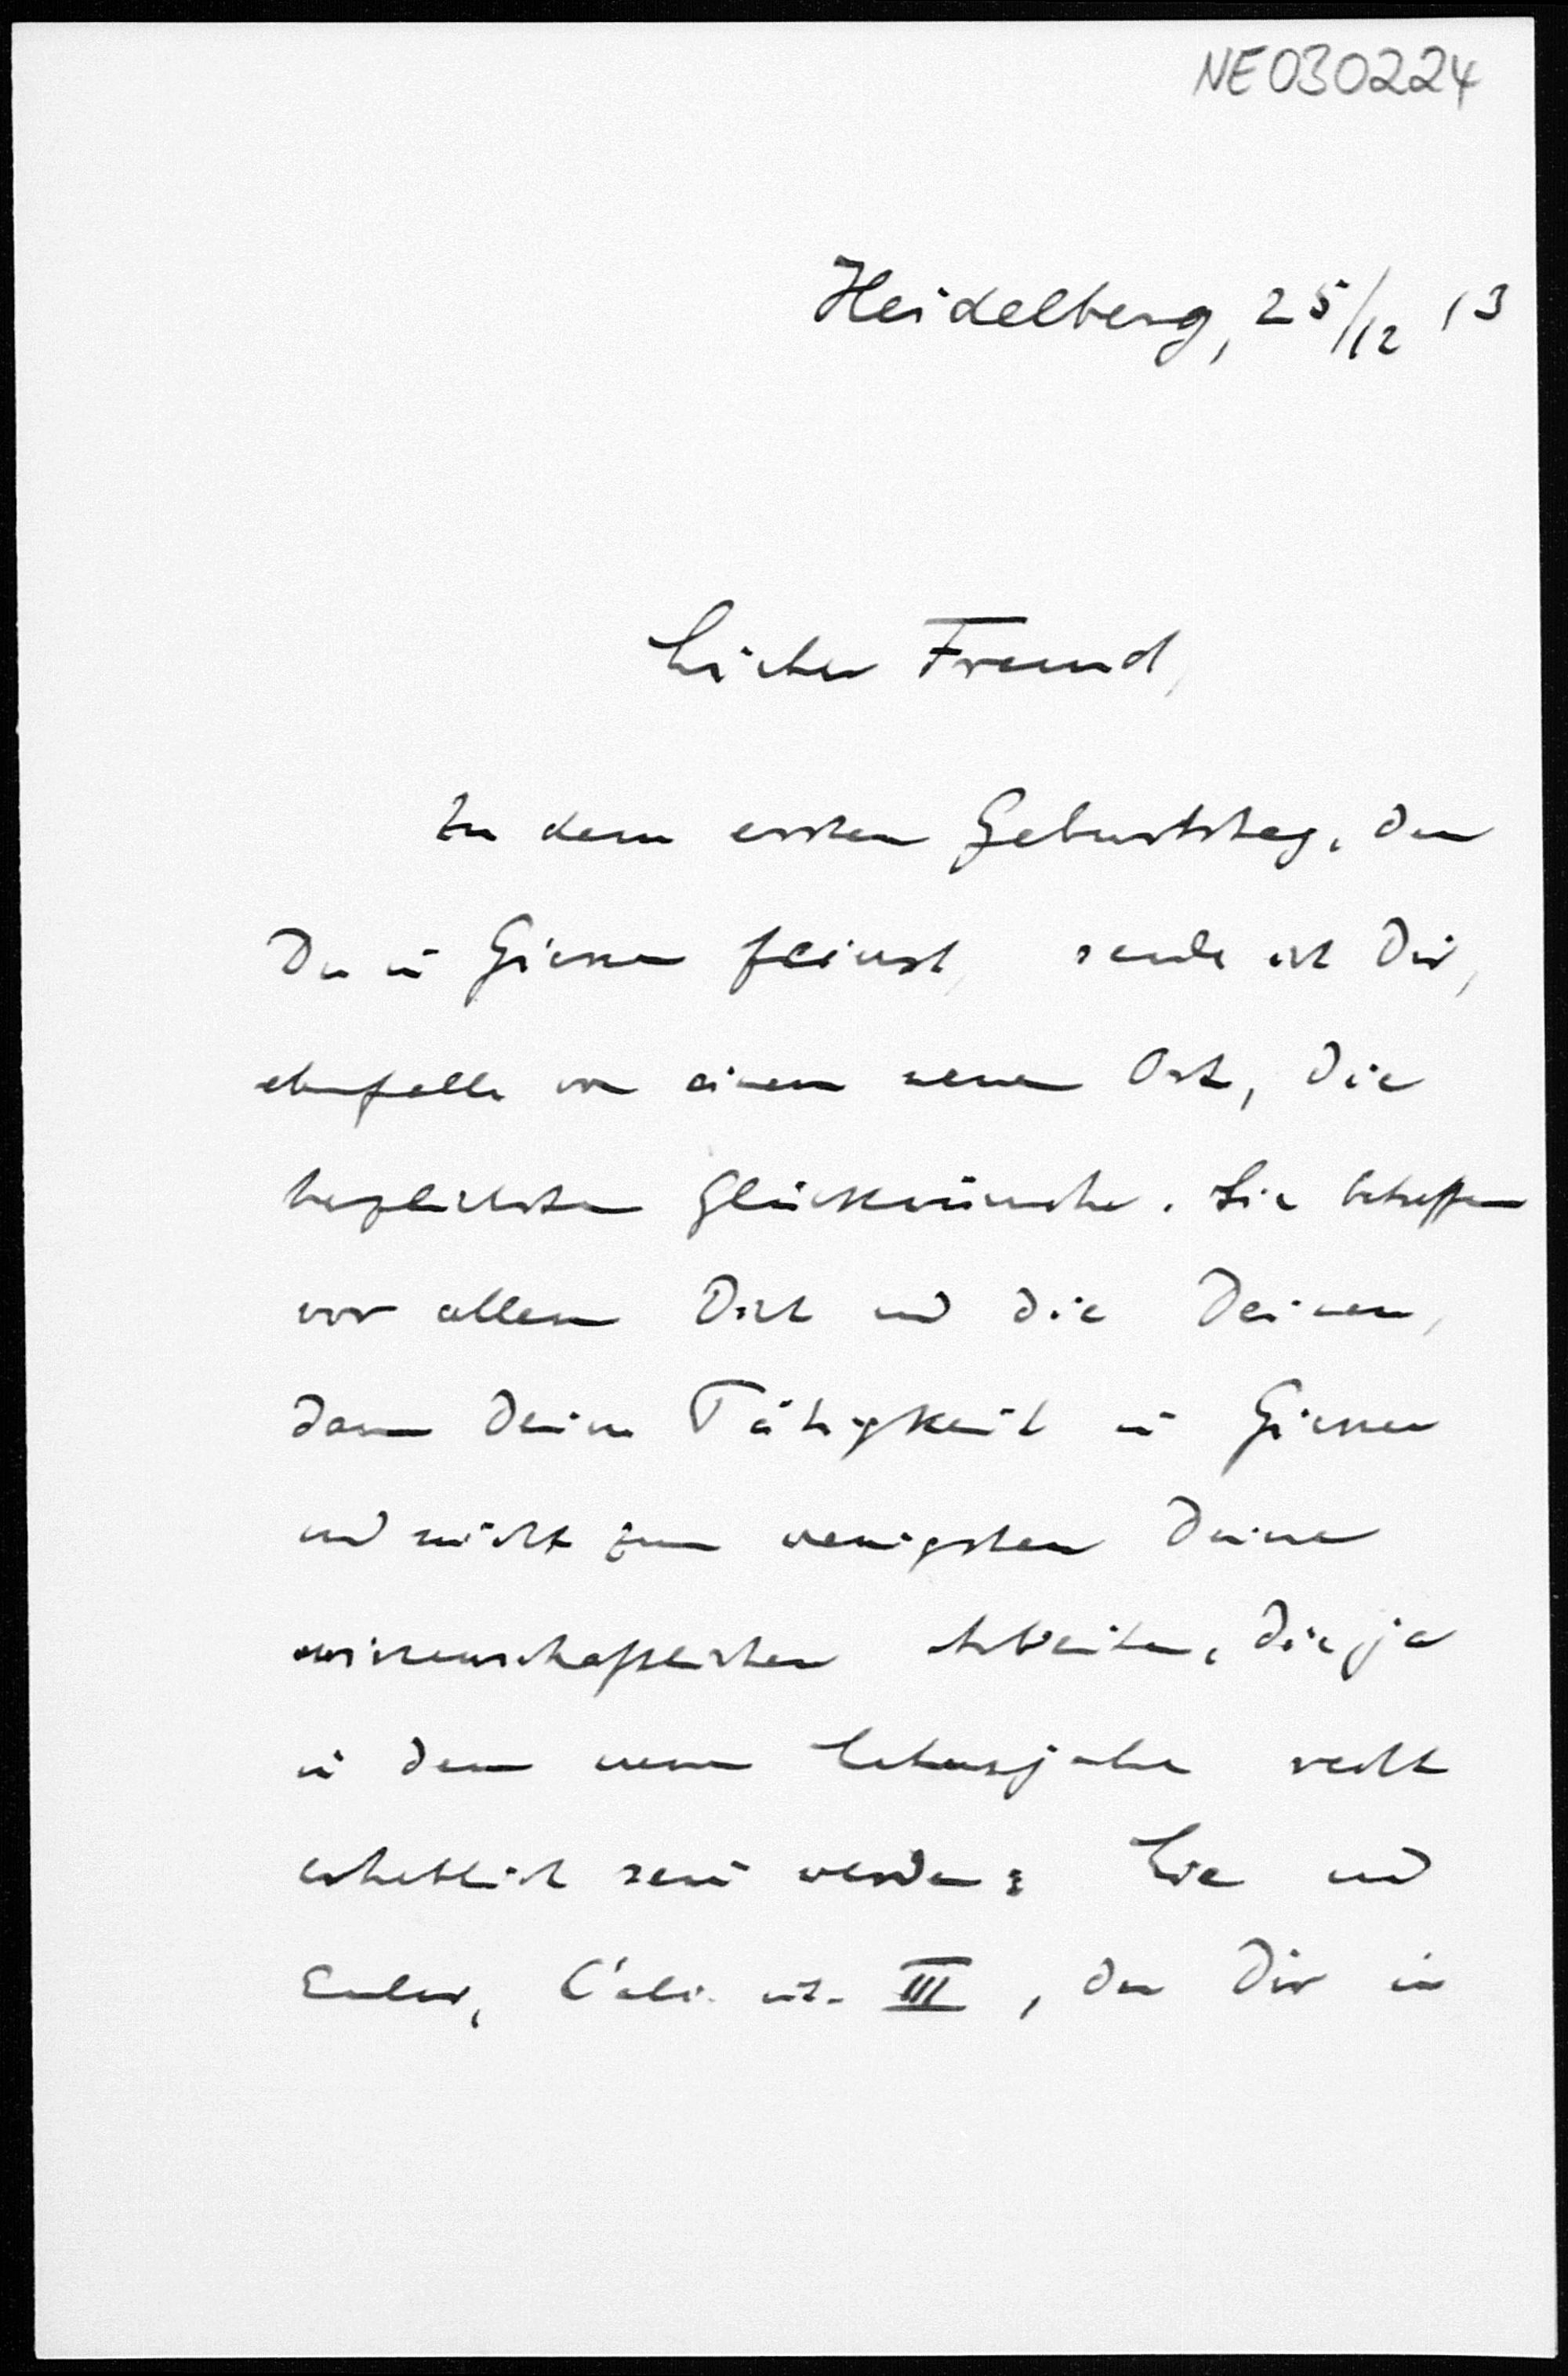 NE030224
Heidelberg, 25/12 13
Lieber Freund,
Zu dem ersten Geburtstag, den
Du in Giessen feierst, sende ich Dir,
ebenfalls von einem neuen Ort, die
herzlichsten Glückwünsche. Sie betreffen
vor allem Dich und die Deinen,
dann Deine Tätigkeit in Giessen
und nicht zum wenigsten Deine
wissenschaftlichen Arbeiten, die ja
in dem neuen Lebensjahre recht
erheblich sein werden: Lie und
Euler, Calc. int. III, den Dir in